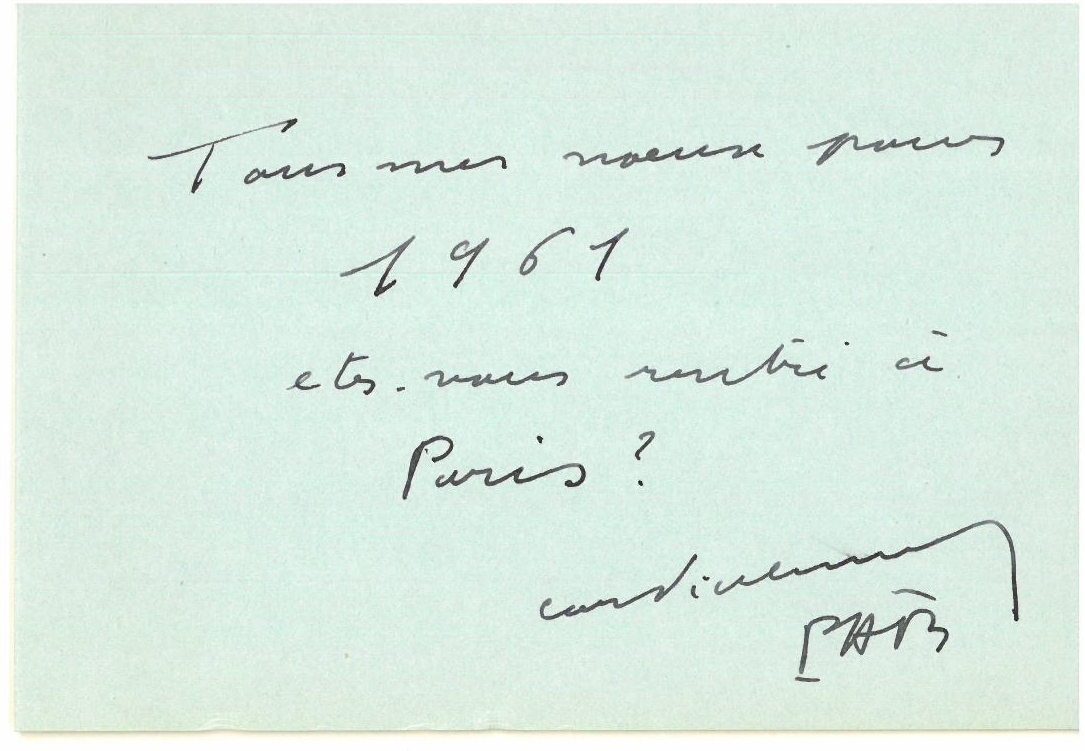 Tous mes voeux pour
1961
etes-vous rentré à
Paris ?
cordialement